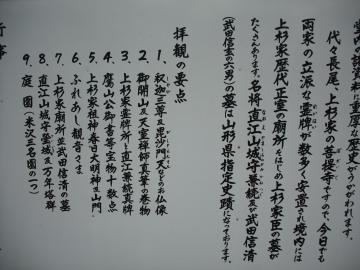 代々長尾、上杉家の菩提寺ですので、今日でも
両家の立派な霊牌が数多く安置され境内には
上杉家歴代正室の廟所をはじめ上杉家臣の墓が
たくさんあります。名将直江山城守兼続及び武田信清
(武田信玄の六男)の墓は山形県指定史蹟になっております。
拝観の要点
1、釈迦三尊及毘沙門天などのお仏像
2、御開山及天室禅師真筆の巻物
3、上杉家霊牌所と直江兼続真牌
4、鷹山公御書等宝物十数点
5、上杉家祖神春日大明神並山門
6、ふれあし観音さま
7、上杉家廟所並武田信清の墓
8、直江山城守塋域及万年塔碑
9、庭園(米沢三名園の一つ)
行事